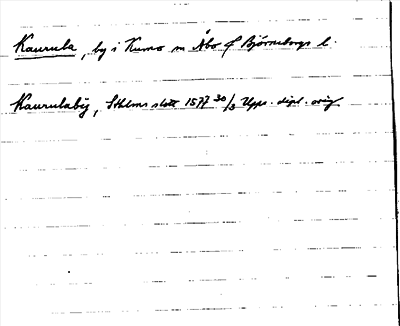 Kaurula, by i Kumo sn Åbo o Björneborgs l.
Kaurulaby, Sthlms slott 1577 30/3 Upps. dipl. orig